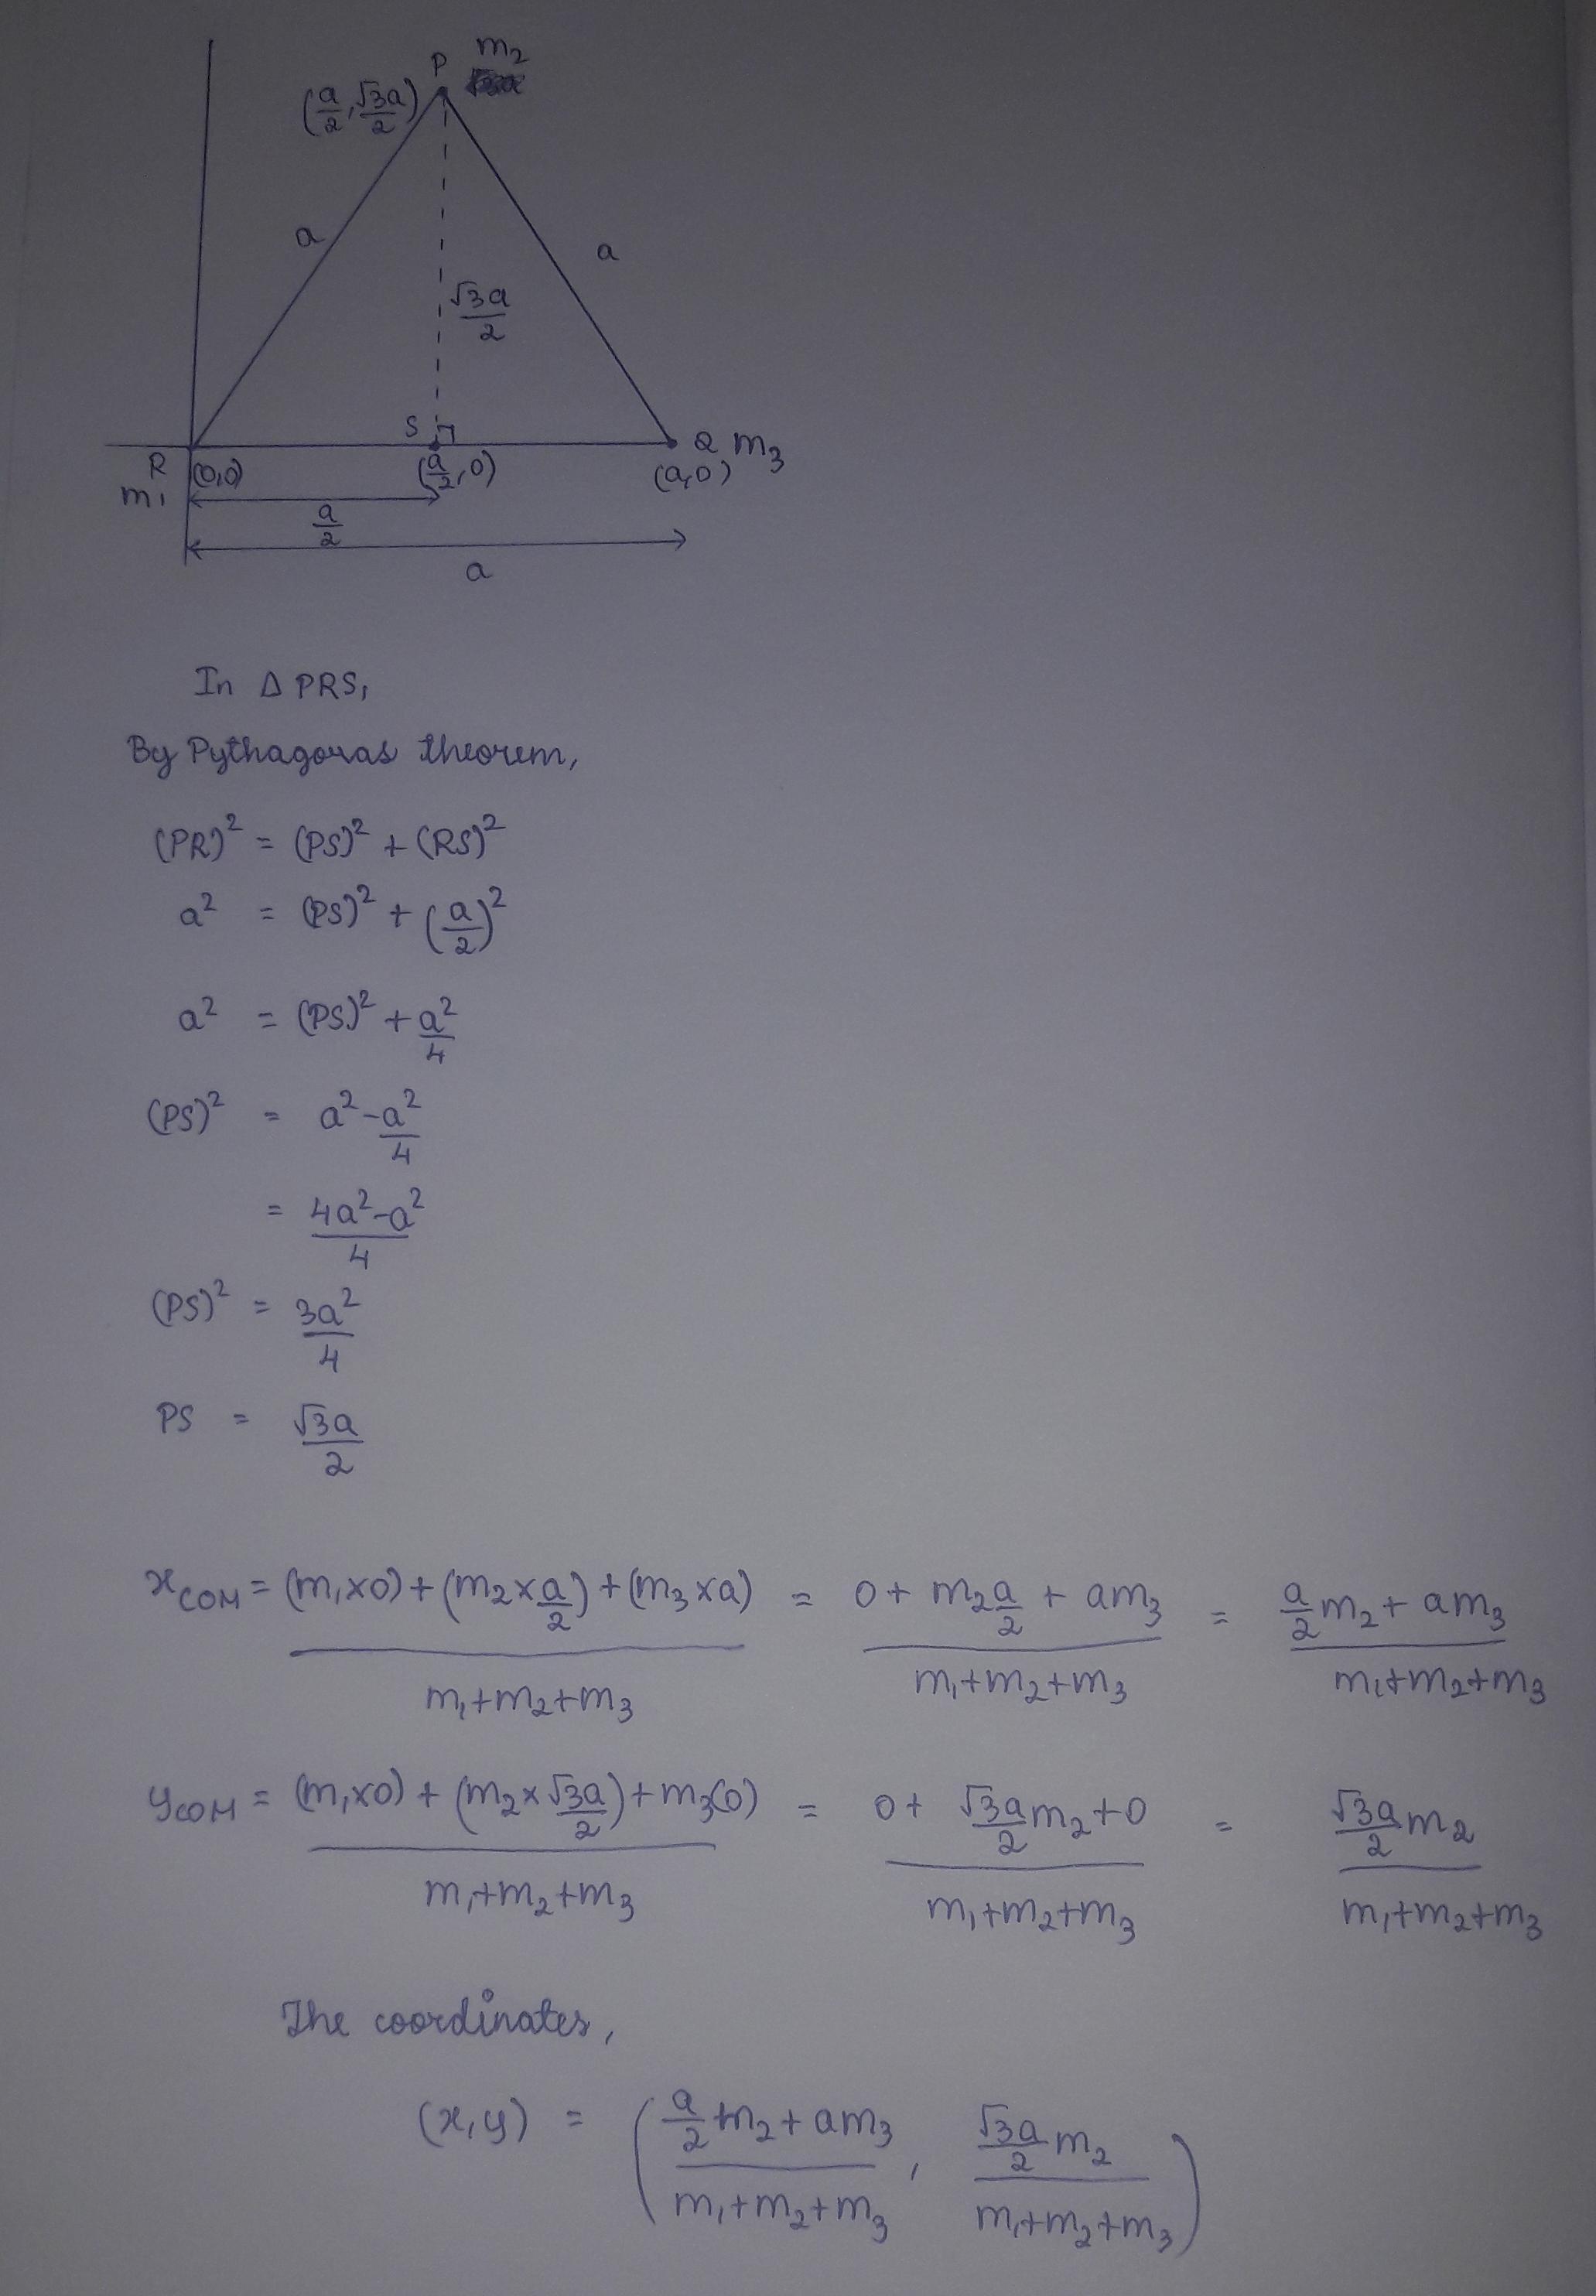 P m₂
(a/2, √3a/2)
a
a
√3a/2
S
R (0,0)
(a/2, 0)
Q m₃
(a,0)
m₁
a/2
a
In Δ PRS,
By Pythagoras theorem,
(PR)² = (PS)² + (RS)²
a² = (PS)² + (a/2)²
a² = (PS)² + a²/4
(PS)² = a² - a²/4
= 4a²-a²/4
(PS)² = 3a²/4
PS = √3a/2
x_COM = (m₁×0) + (m₂×a/2) + (m₃×a) / m₁+m₂+m₃ = 0 + m₂a/2 + am₃ / m₁+m₂+m₃ = a/2 m₂ + am₃ / m₁+m₂+m₃
y_COM = (m₁×0) + (m₂×√3a/2) + m₃(0) / m₁+m₂+m₃ = 0 + √3a/2 m₂ + 0 / m₁+m₂+m₃ = √3a/2 m₂ / m₁+m₂+m₃
The coordinates,
(x,y) = (a/2 m₂ + am₃ / m₁+m₂+m₃ , √3a/2 m₂ / m₁+m₂+m₃)